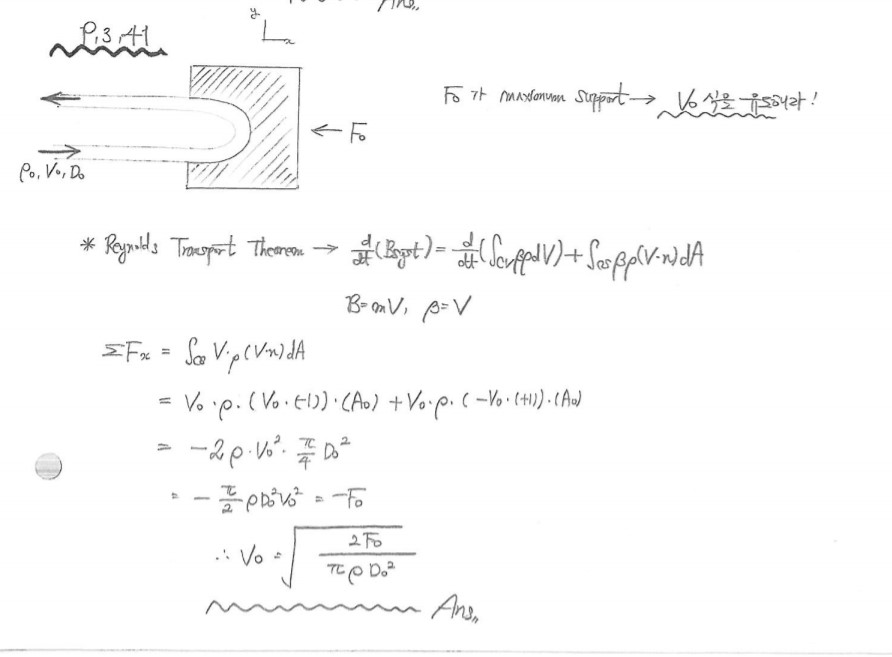 Ans..
y
x
P.3.41
F₀가 maximum support → V₀ 식을 유도해라!
← F₀
ρ₀, V₀, D₀
* Reynolds Transport Theorem → d/dt(Bsyst) = d/dt(∫cv βρdV) + ∫cs βρ(V·n)dA
B=mV, β=V
ΣFx = ∫cs V·ρ(V·n)dA
= V₀·ρ·(V₀·(-1))·(A₀) + V₀·ρ·(-V₀·(+1))·(A₀)
= -2ρ·V₀²·π/4 D₀²
= -π/2 ρD₀²V₀² = -F₀
∴ V₀ = √(2F₀/πρD₀²)
Ans..